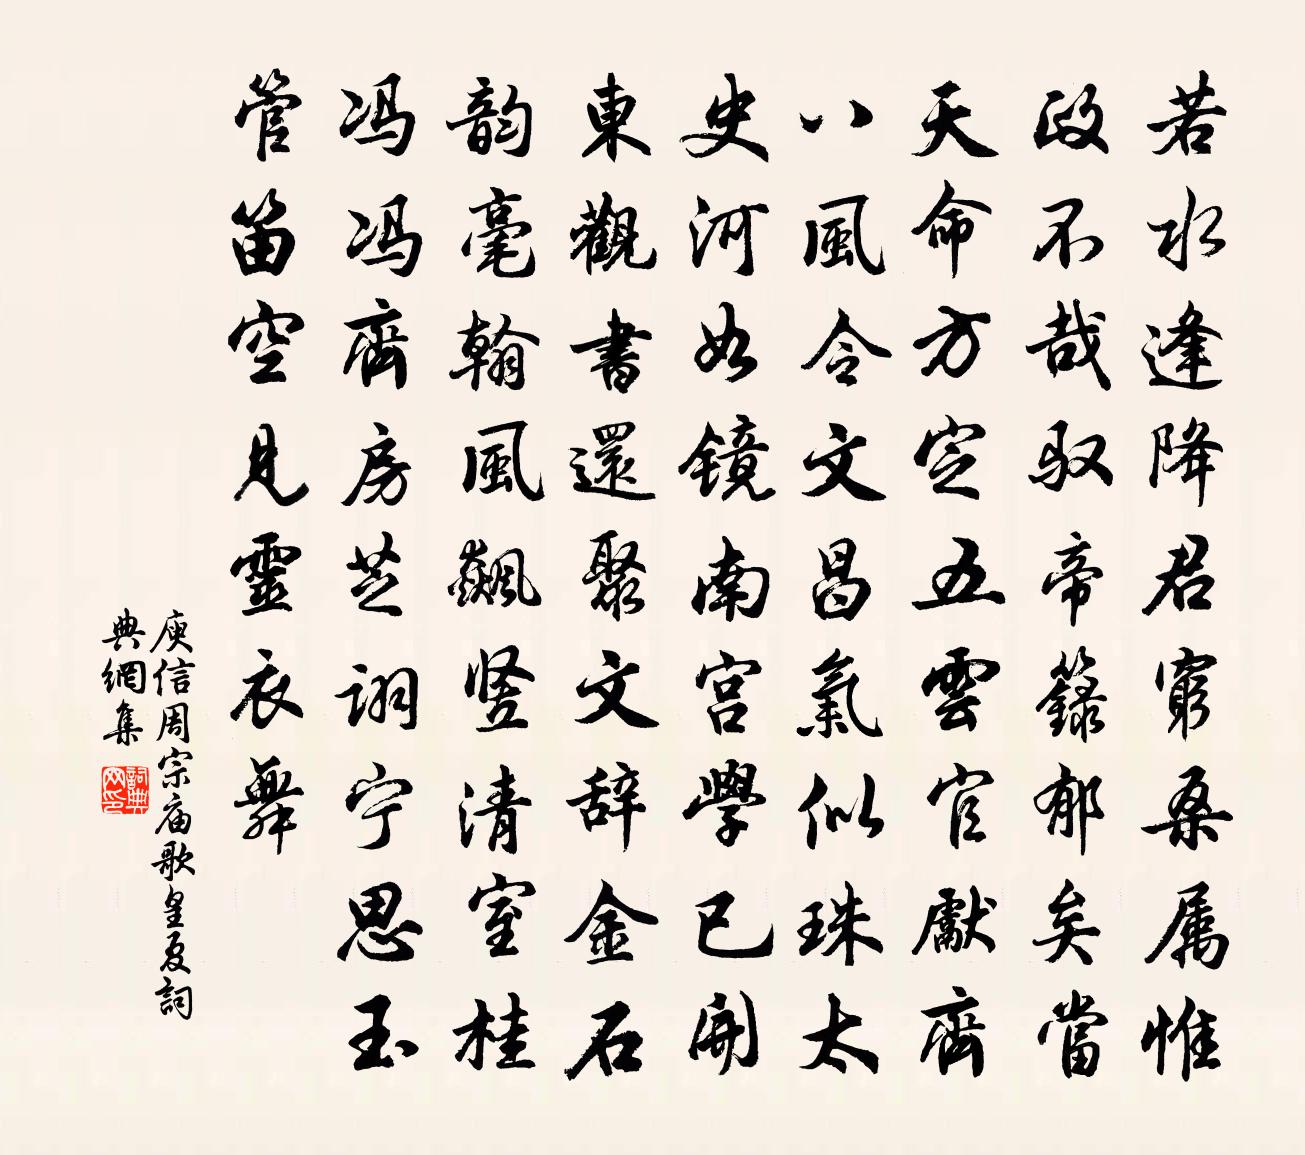 若水逢降君穷桑属惟
政不哉驭帝籙郁矣當
天命方定五雲官獻齊
八風令文昌氣似珠太
史河如鏡南宫學已開
東觀書還聚文辞金石
韵毫翰風飆竖清室桂
冯冯齊房芝詡宁思玉
管笛空見靈衣舞
庾信周宗庙歌皇夏詞
典網集
詞典
网印